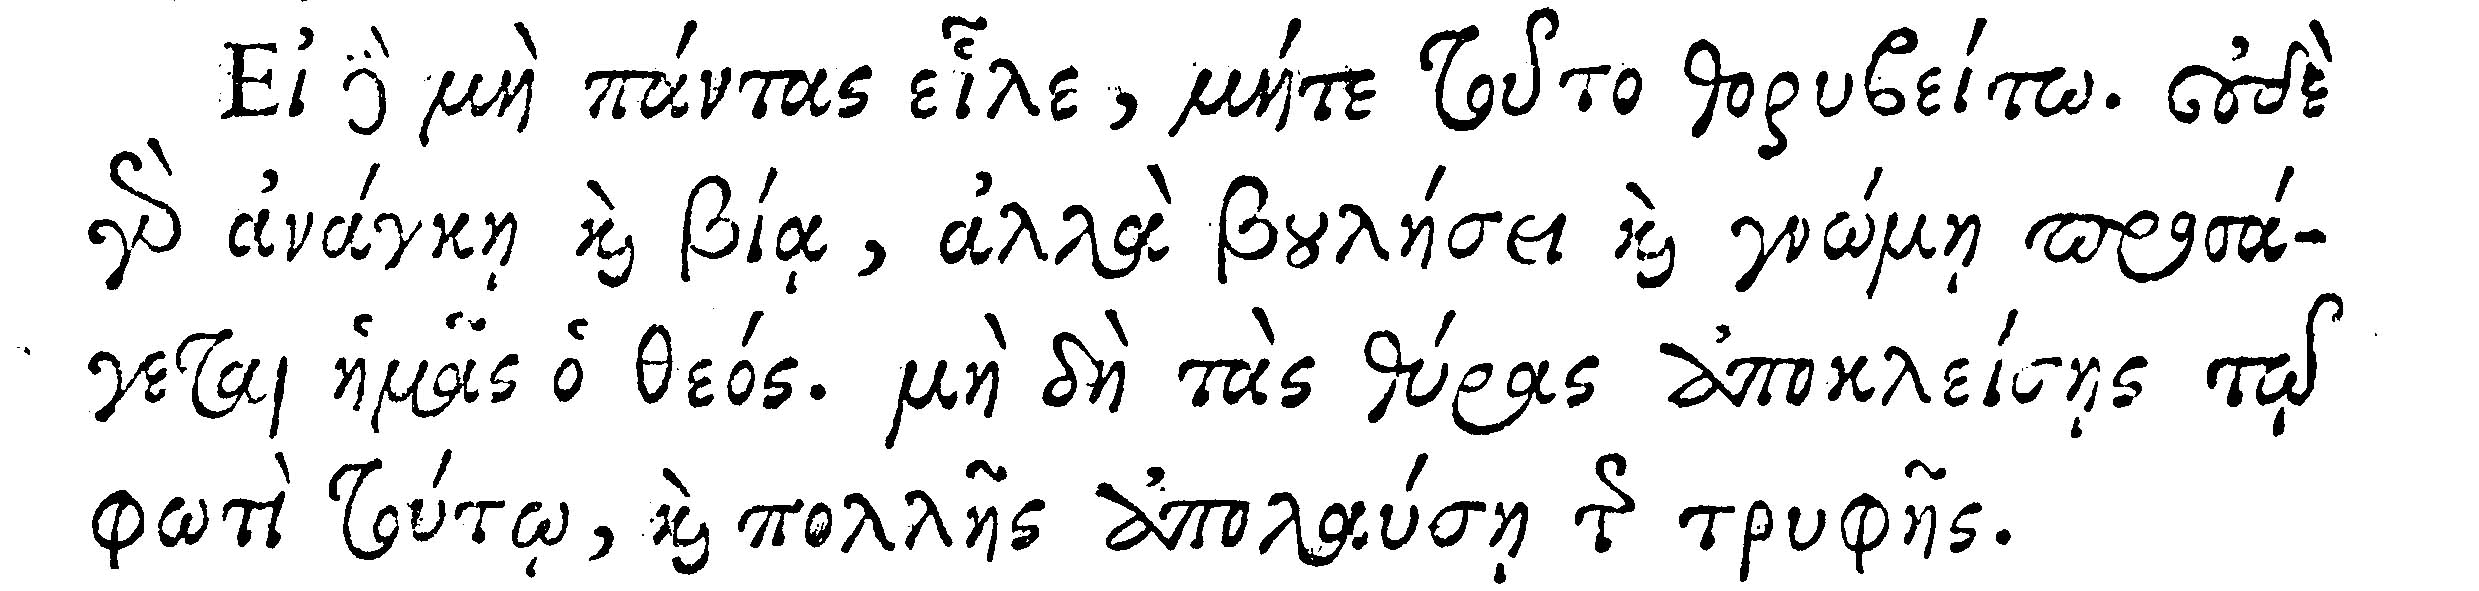 Εἰ δὲ μὴ πάντας εἷλε, μήτε τοῦτο θορυβείτω. οὐδὲ
γὰρ ἀνάγκῃ καὶ βίᾳ, ἀλλὰ βουλήσει καὶ γνώμῃ προσά-
γεται ἡμᾶς ὁ θεός. μὴ δὴ τὰς θύρας ἀποκλείσῃς τῷ
φωτὶ τούτῳ, καὶ πολλῆς ἀπολαύσῃ τῆς τρυφῆς.